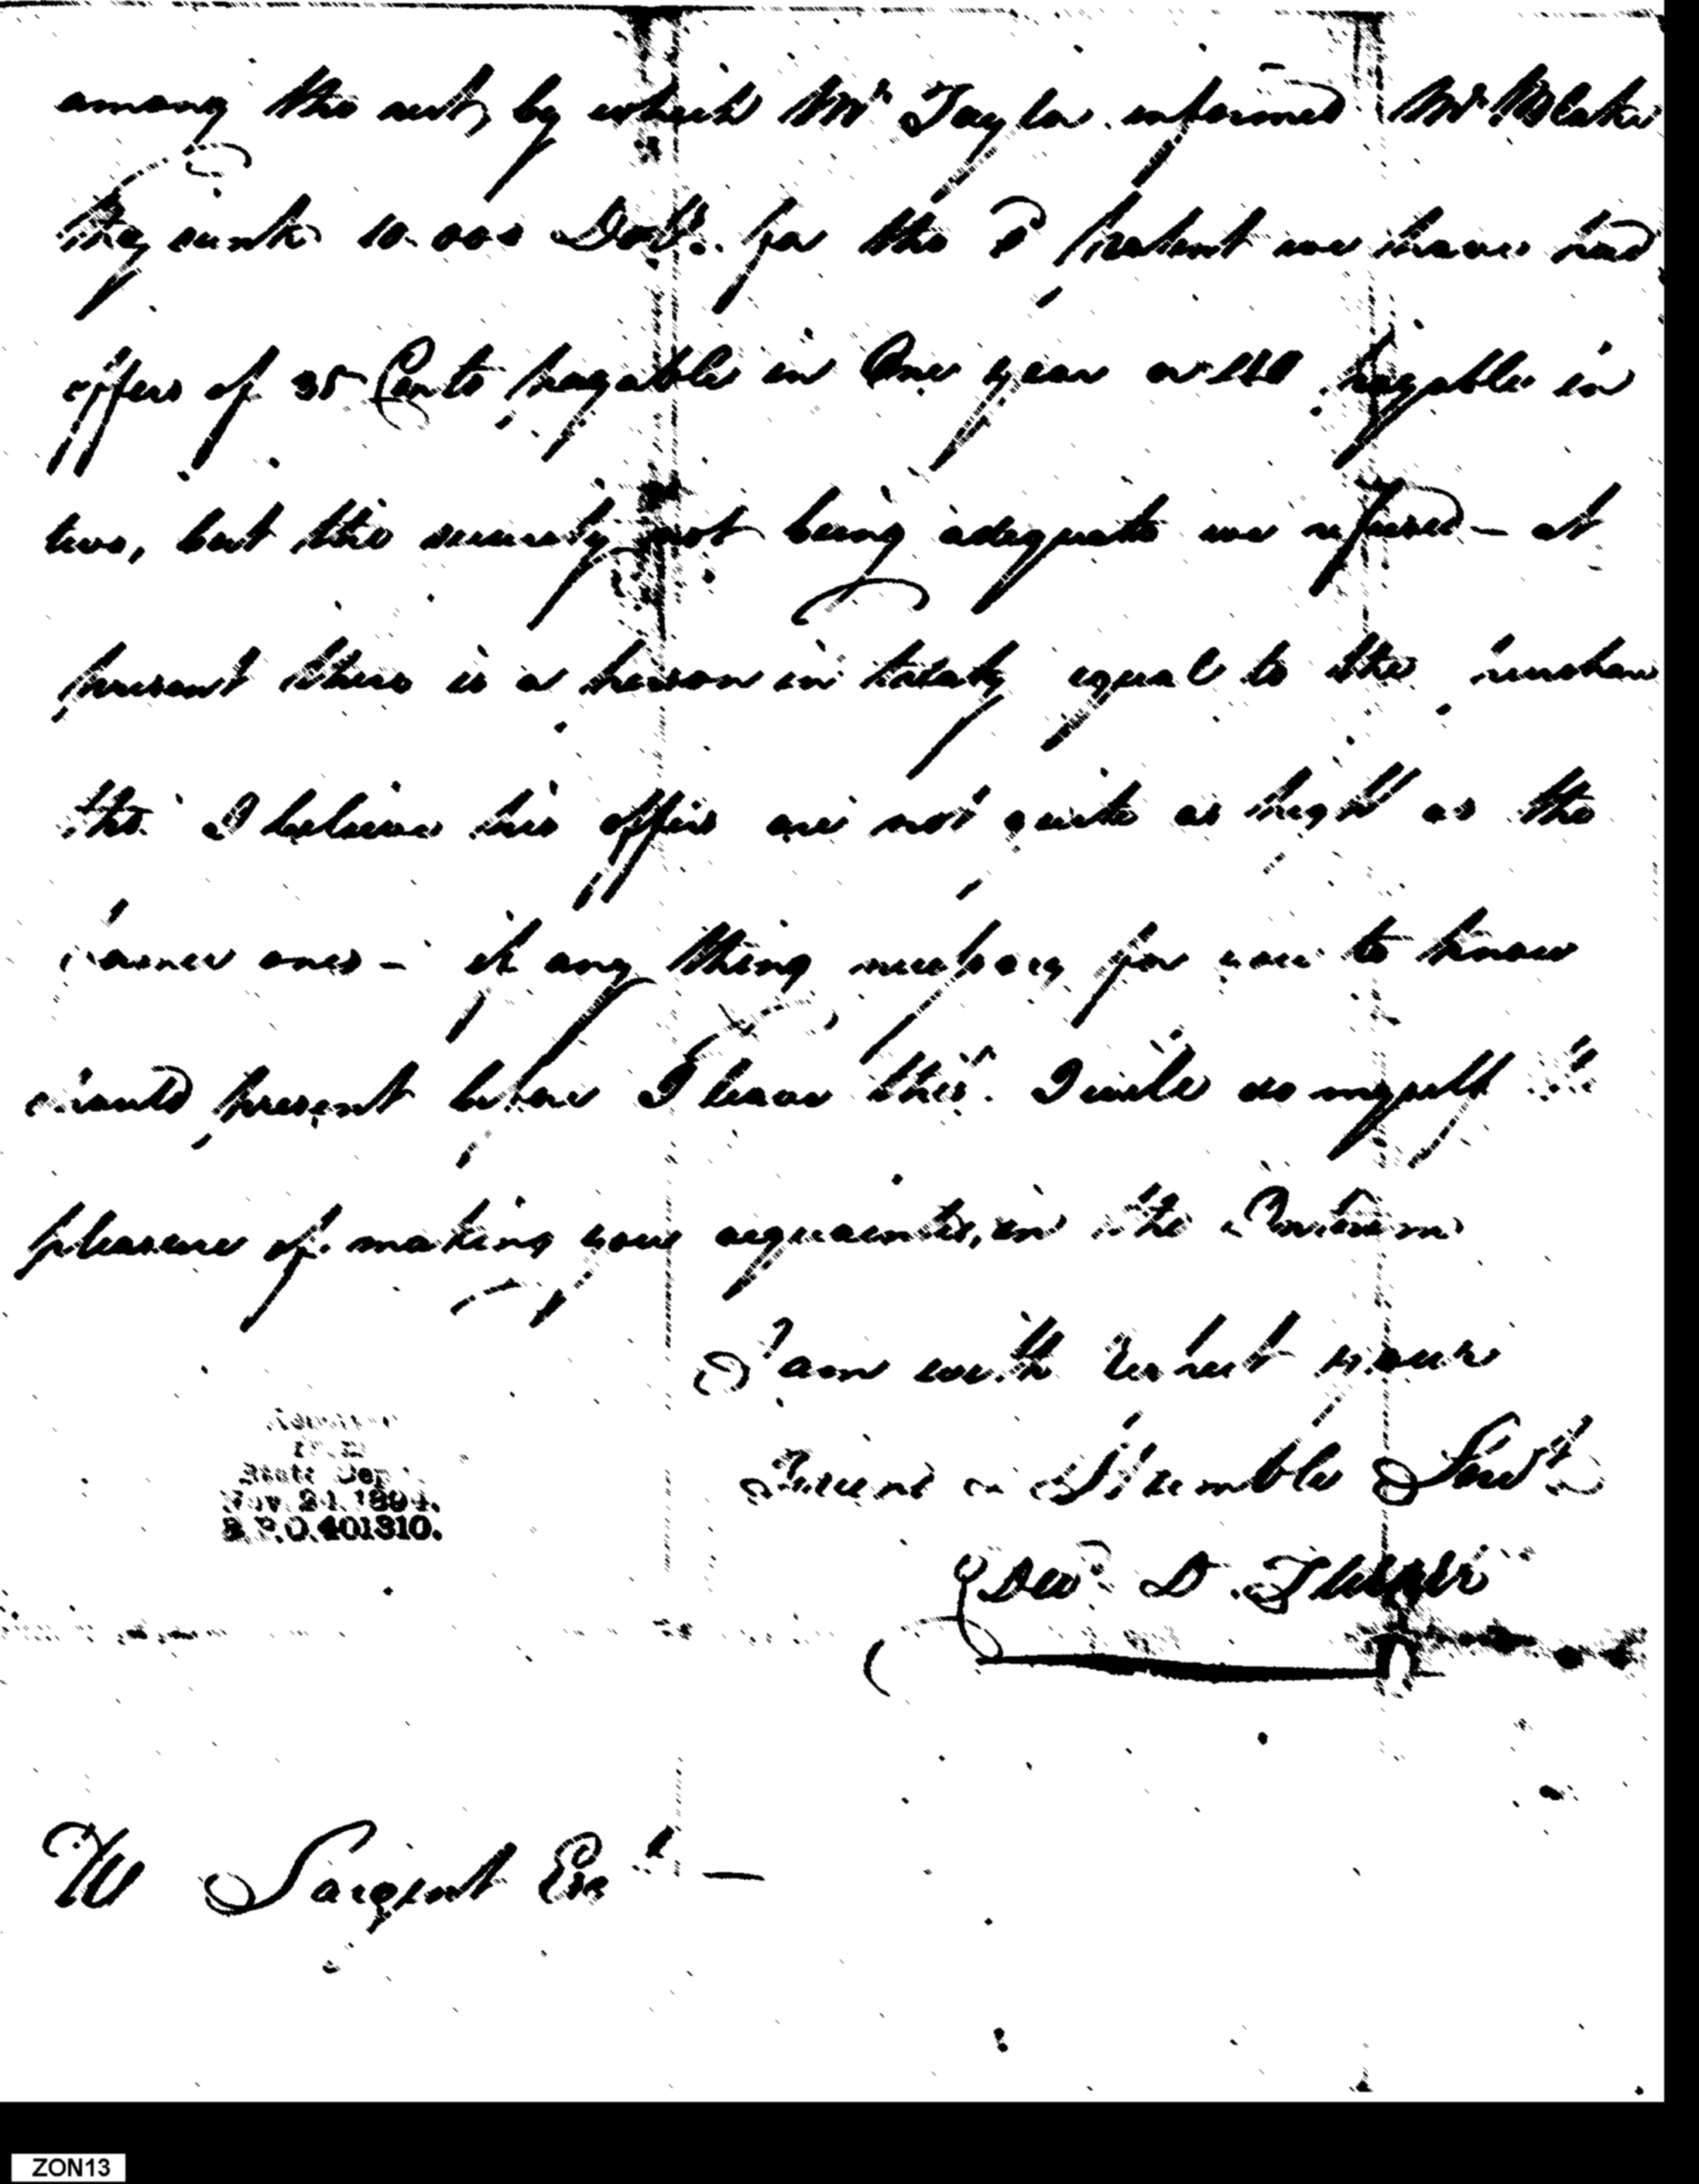 among the rest, by which Mr Taylor informed Mr Blake
they sunk 10.000 Dolls. for the patent we have had
offers of 35 Cents payable in One year or 40 payable in
two, but the security not being adequate we refused – at
present there is a person in treaty equal to the purchase
tho' I believe his offers are not quite as high as the
former ones – if any thing necessary for you to know
should present before I leave this. I will do myself the
pleasure of making you acquainted, in the Interim
I am with your
Humble Servt
Geo. D.
State Dep
Nov. 21. 1894.
R.P.O. 401310.
W Sargent Esqr –
ZON13